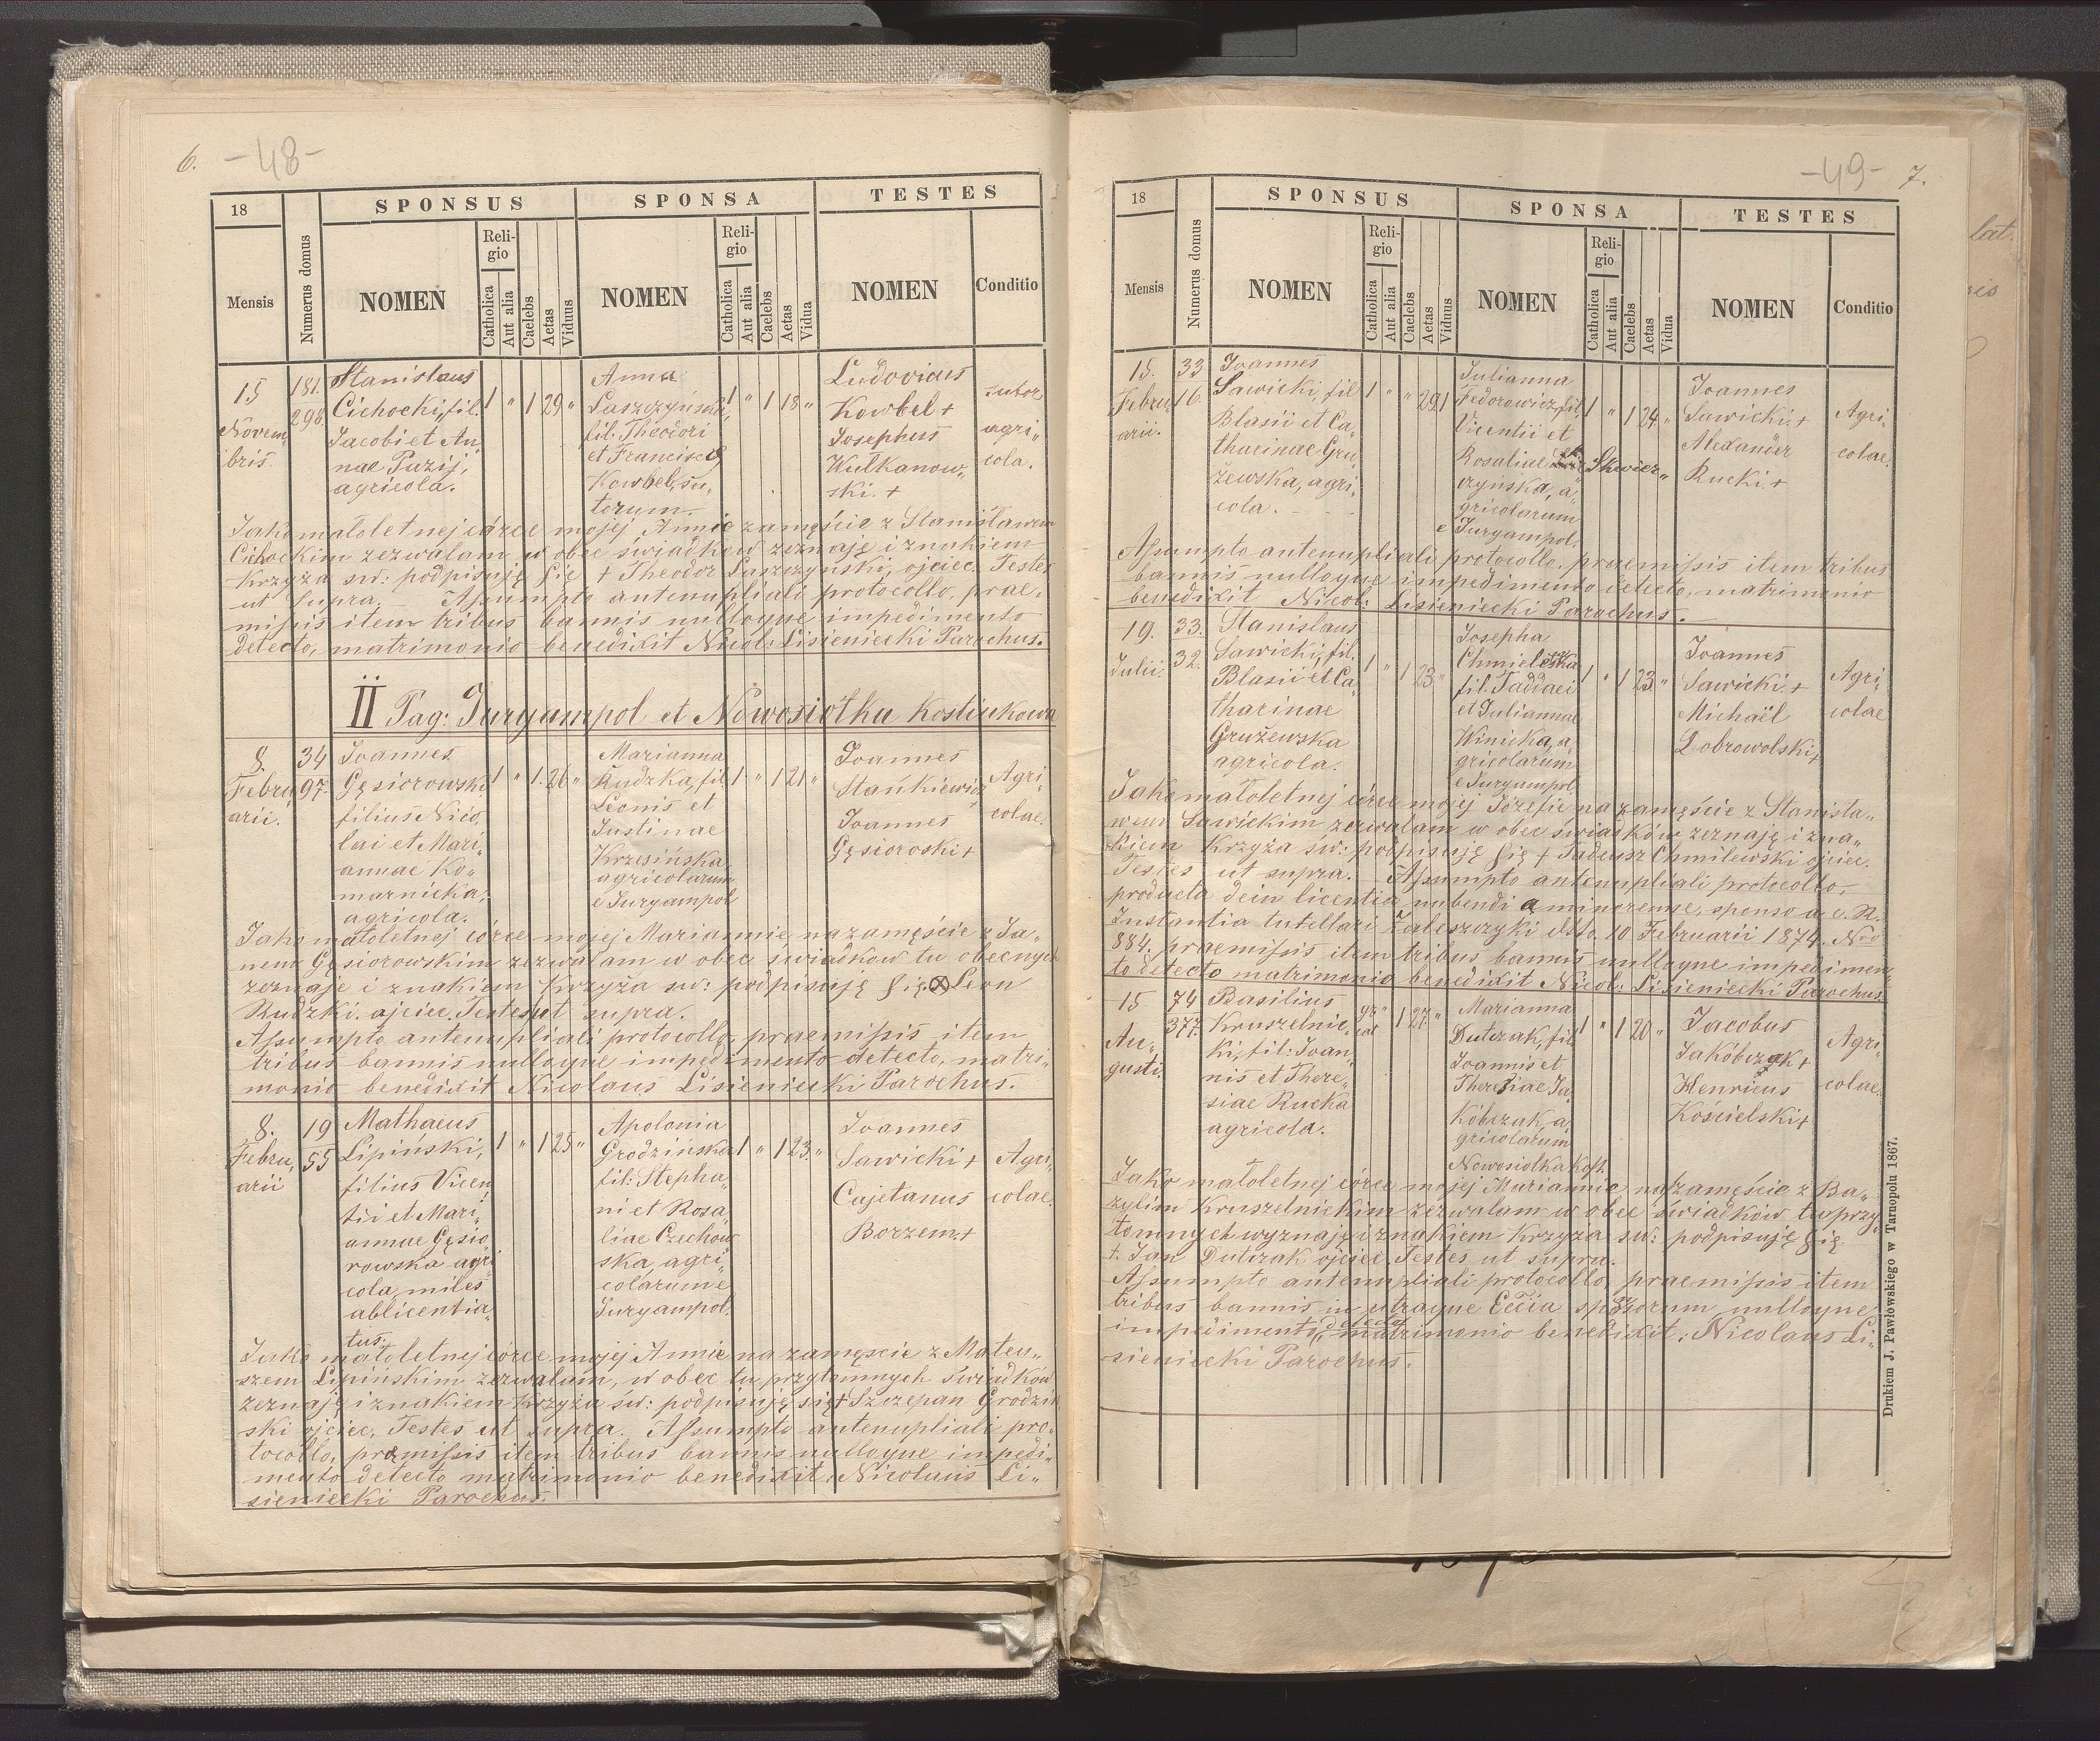 6. -48-
18
SPONSUS SPONSA TESTES
Mensis Numerus domus NOMEN Religio Catholica Aut alia Caelebs Aetas Viduus NOMEN Religio Catholica Aut alia Caelebs Aetas Vidua NOMEN Conditio
15 Novem„ bris.
181. 298.
Stanislaus
Cichocki, fil.
Jacobi et An„
nae Puzij,
agricola.
1 „ 1 29 „
Anna
Laszczyńska,
fil. Theodori
et Franciscae
Kowbel, su„
torum.
1 „ 1 18 „
Ludovicus
Kowbel +
Josephus
Kulkanow„
ski. +
sutor
agri„
cola.
Jako małoletnej córce mojej Annie zamęście z Stanisławem
Cichockim zezwalam w obec świadków zeznaję i znakiem
krzyża sw: podpisuję się + Theodor Laszczyński, ojciec. Testes
ut Supra. Assumpto antenupliali protocollo, prae„
missis item tribus bannis nulloque impedimento
detecto, matrimonio benedixit Nicol: Lisieniecki Parochus.
II Pag: Juryampol et Nowosiołka Kostiukowa
8. Febru„ arii.
34 97.
Joannes
Gęsiorowski
filius Nico„
lai et Mari„
annae Ko„
marnicka,
agricola.
1 „ 1. 26 „
Marianna
Rudzka, fil.
Leonis et
Justinae
Krzesińska
agricolarum
e Juryampol
1 „ 1 21 „
Joannes
Stańkiewicz
Joannes
Gęsioroski +
Agri„
colae.
Jako małoletnej córce mojej Mariannie na zamęście z Ja„
nem Gęsiorowskim zezwalam w obec świadków tu obecnych
zeznaje i znakiem Krzyża sw: podpisuję się. Leon
Rudzki. ojciec. Testes ut supra.
Assumpto antenupliali protocollo, praemissis item
tribus bannis nulloque impedimento detecto, matri„
monio benedixit Nicolaus Lisieniecki Parochus.
8. Febru„ arii
19 55
Mathaeus
Lipiński,
filius Vicen
tii et Mari„
annae Gęsio
rowska agri
cola, miles
ablicentia„
tus.
1 „ 1 25 „
Apolonia
Grodzińska
fil: Stepha„
ni et Rosa„
liae Czechow
ska, agri„
colarum e
Juryampol.
1 „ 1 23. „
Joannes
Sawicki +
Cajetanus
Borzem. +
Agri„
colae
Jako małoletnej córce mojej Annie na zamęscie z Mateu„
szem Lipińskim zezwalam, w obec tu przytomnych świadków
zeznaję i znakiem Krzyża sw: podpisuję się + Szczepan Grodziń
ski ojciec, Testes ut supra. Assumpto antenupliali pro„
tocollo, praemissis item tribus bannis nulloque impedi„
mento detecto matrimonio benedixit. Nicolaus Li„
sieniecki Parochus.
-49- 7.
18
SPONSUS SPONSA TESTES
Mensis Numerus domus NOMEN Religio Catholica Aut alia Caelebs Aetas Viduus NOMEN Religio Catholica Aut alia Caelebs Aetas Vidua NOMEN Conditio
15. Febru„ arii.
33 16.
Joannes
Sawicki, fil
Blasii et Ca„
tharinae Gru„
żewska, agri„
cola.
1 „ „ 29 1
Julianna
Fedorowicz, fil.
Vicentii et
Rosaliae Skwier„
czyńska, a„
gricolarum
e Juryampol.
1 „ 1 24 „
Joannes
Sawicki. +
Alexander
Rucki. +
Agri„
colae.
Assumpto antenupliali protocollo. praemissis item tribus
bannis nulloque impedimento detecto, matrimonio
benedixit Nicol: Lisieniecki Parochus.
19. Julii.
33. 32.
Stanislaus
Sawicki, fil.
Blasii et Ca„
tharinae
Grużewska
agricola.
1 „ 1 23 „
Josepha
Chmielewska
fil. Taddaei
et Juliannae
Winicka, a„
gricolarum
e Juryampol
1 „ 1 23. „
Joannes
Sawicki. +
Michaël
Dobrowolski +
Agri„
colae
Jako małoletnej córce mojej Józefie na zamęście z Stanisła„
wem Sawickim zezwalam w obec świadków zeznaję i zna„
kiem Krzyża sw: podpisuję się + Tadeusz Chmilewski ojciec.
Testes ut supra. Assumpto antenupliali protocollo,
producta dein licentia nubendi a minorenne, sponso a c. R.
Instantia tutellari Zaleszczyki ddto. 10 Februarii 1874. Nro
884. praemissis item tribus bannis nulloque impedimen„
to detecto matrimonio benedixit Nicol: Lisieniecki Parochus
15 Au„ gusti.
74 377.
Basilius
Kruszelnic„
ki, fil: Joan„
nis et There„
siae Rucka
agricola.
gr cat „ 1 27. „
Marianna
Dutczak, fil
Joannis et
Theresiae Ja„
kóbczak a„
gricolarum
Nowosiolka Kost.
1 „ 1 20 „
Jacobus
Jakóbczak +
Henricus
Kościelski +
Agri„
colae.
Jako małoletnej córce mojej Mariannie na zamęście z Ba„
zylim Kruszelnickim zezwalam w obec świadków tu przy„
tomnych wyznaję i znakiem Krzyża sw: podpisuję się
+. Jan Dutczak ojciec. Testes ut supra.
Assumpto antenupliali protocollo, praemissis item
tribus bannis in utraque Eccia sponsorum nulloque
impedimento detecto matrimonio benedixit: Nicolaus Li„
sieniecki Parochus.
Drukiem J. Pawłowskiego w Tarnopolu 1867.
lat.
33